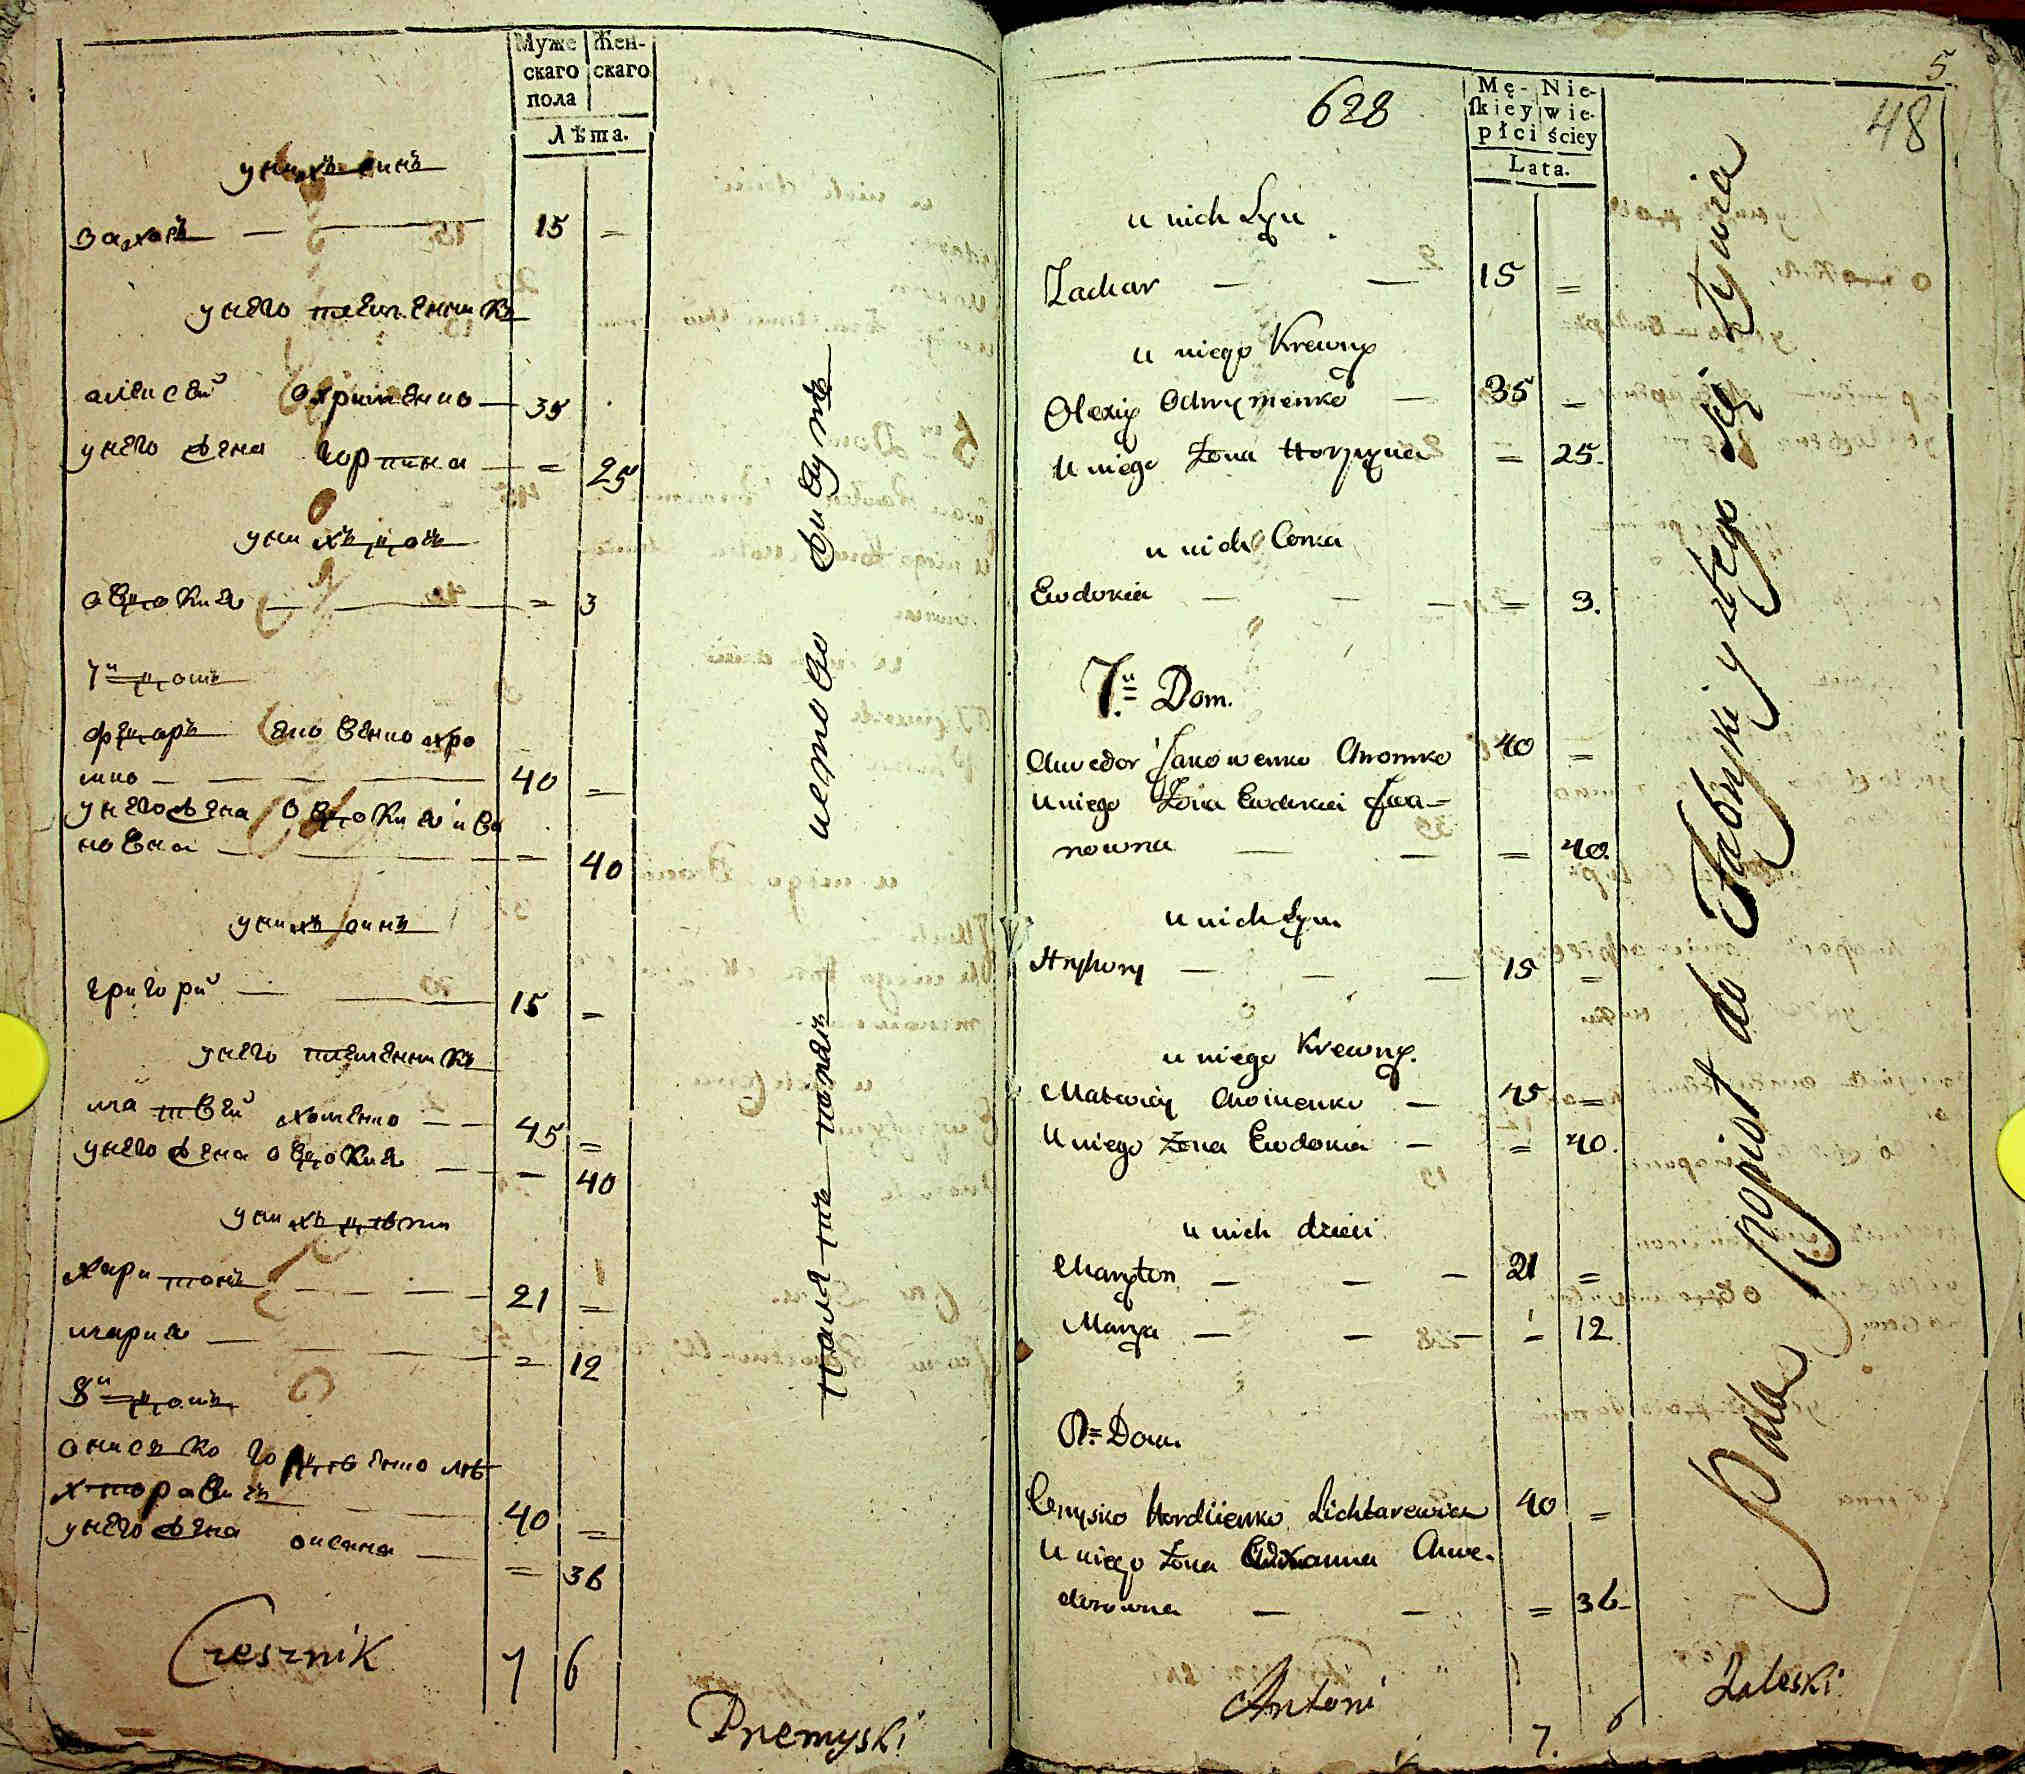 Муже Жен-
скаго скаго
пола
Лѣта.
у нихъ синъ
захаръ 15 =
у него племенникъ
алексей охрименко 35
у него жена горпина = 25
у нихъ дочь
овдокия = 3
7й домъ
федаръ яковенко хро
мко 40 =
у него жена овдокия ива
новна = 40
у нихъ синъ
григорий 15 =
у него племенникъ
матвей хоменко 45 =
у него жена овдокия = 40
у нихъ дѣти
харитонъ 21 =
мария = 12
8й домъ
онисько гордѣенко лѣ
хторавичъ 40 =
у него жена оксана = 36
7 6
Czesznik
Przemyski
628
5
48
Mę- Nie-
ſkiey wie-
płci ściey
Lata.
u nich Syn
Zachar 15 =
u niego Krewny
Olexiy Ochrymenko 35 =
U niego Żona Horpyna = 25.
u nich Corka
Ewdokia = 3.
7y Dom.
Chwedor Jakowenko Chromko 40 =
U niego Żona Ewdokia Iwa-
nowna = 40.
u nich Syn
Hryhory 15 =
u niego Krewny.
Matwiey Chomenko 45 =
U niego Żona Ewdokia = 40.
u nich dzieci
Charyton 21 =
Marya = 12
8y Dom.
Onysko Hordiienko Lichtarewicz 40 =
U niego Żona Oxanna Chwe-
dorowna = 36
7. 6
Antoni
Zaleski